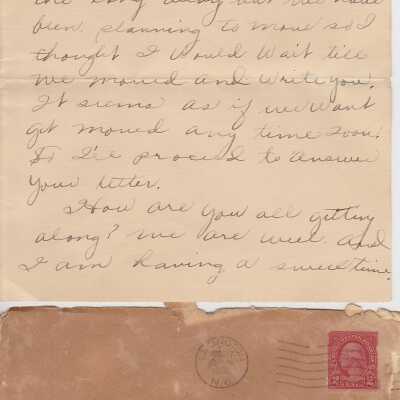 been planning to move so I
thought I would wait till
we moved and write you.
It seems as if we wont
get moved any time soon!
So I'll proceed to answer
your letter.
How are you all getting
along? We are well. And
I am having a sweet time.
N.C.